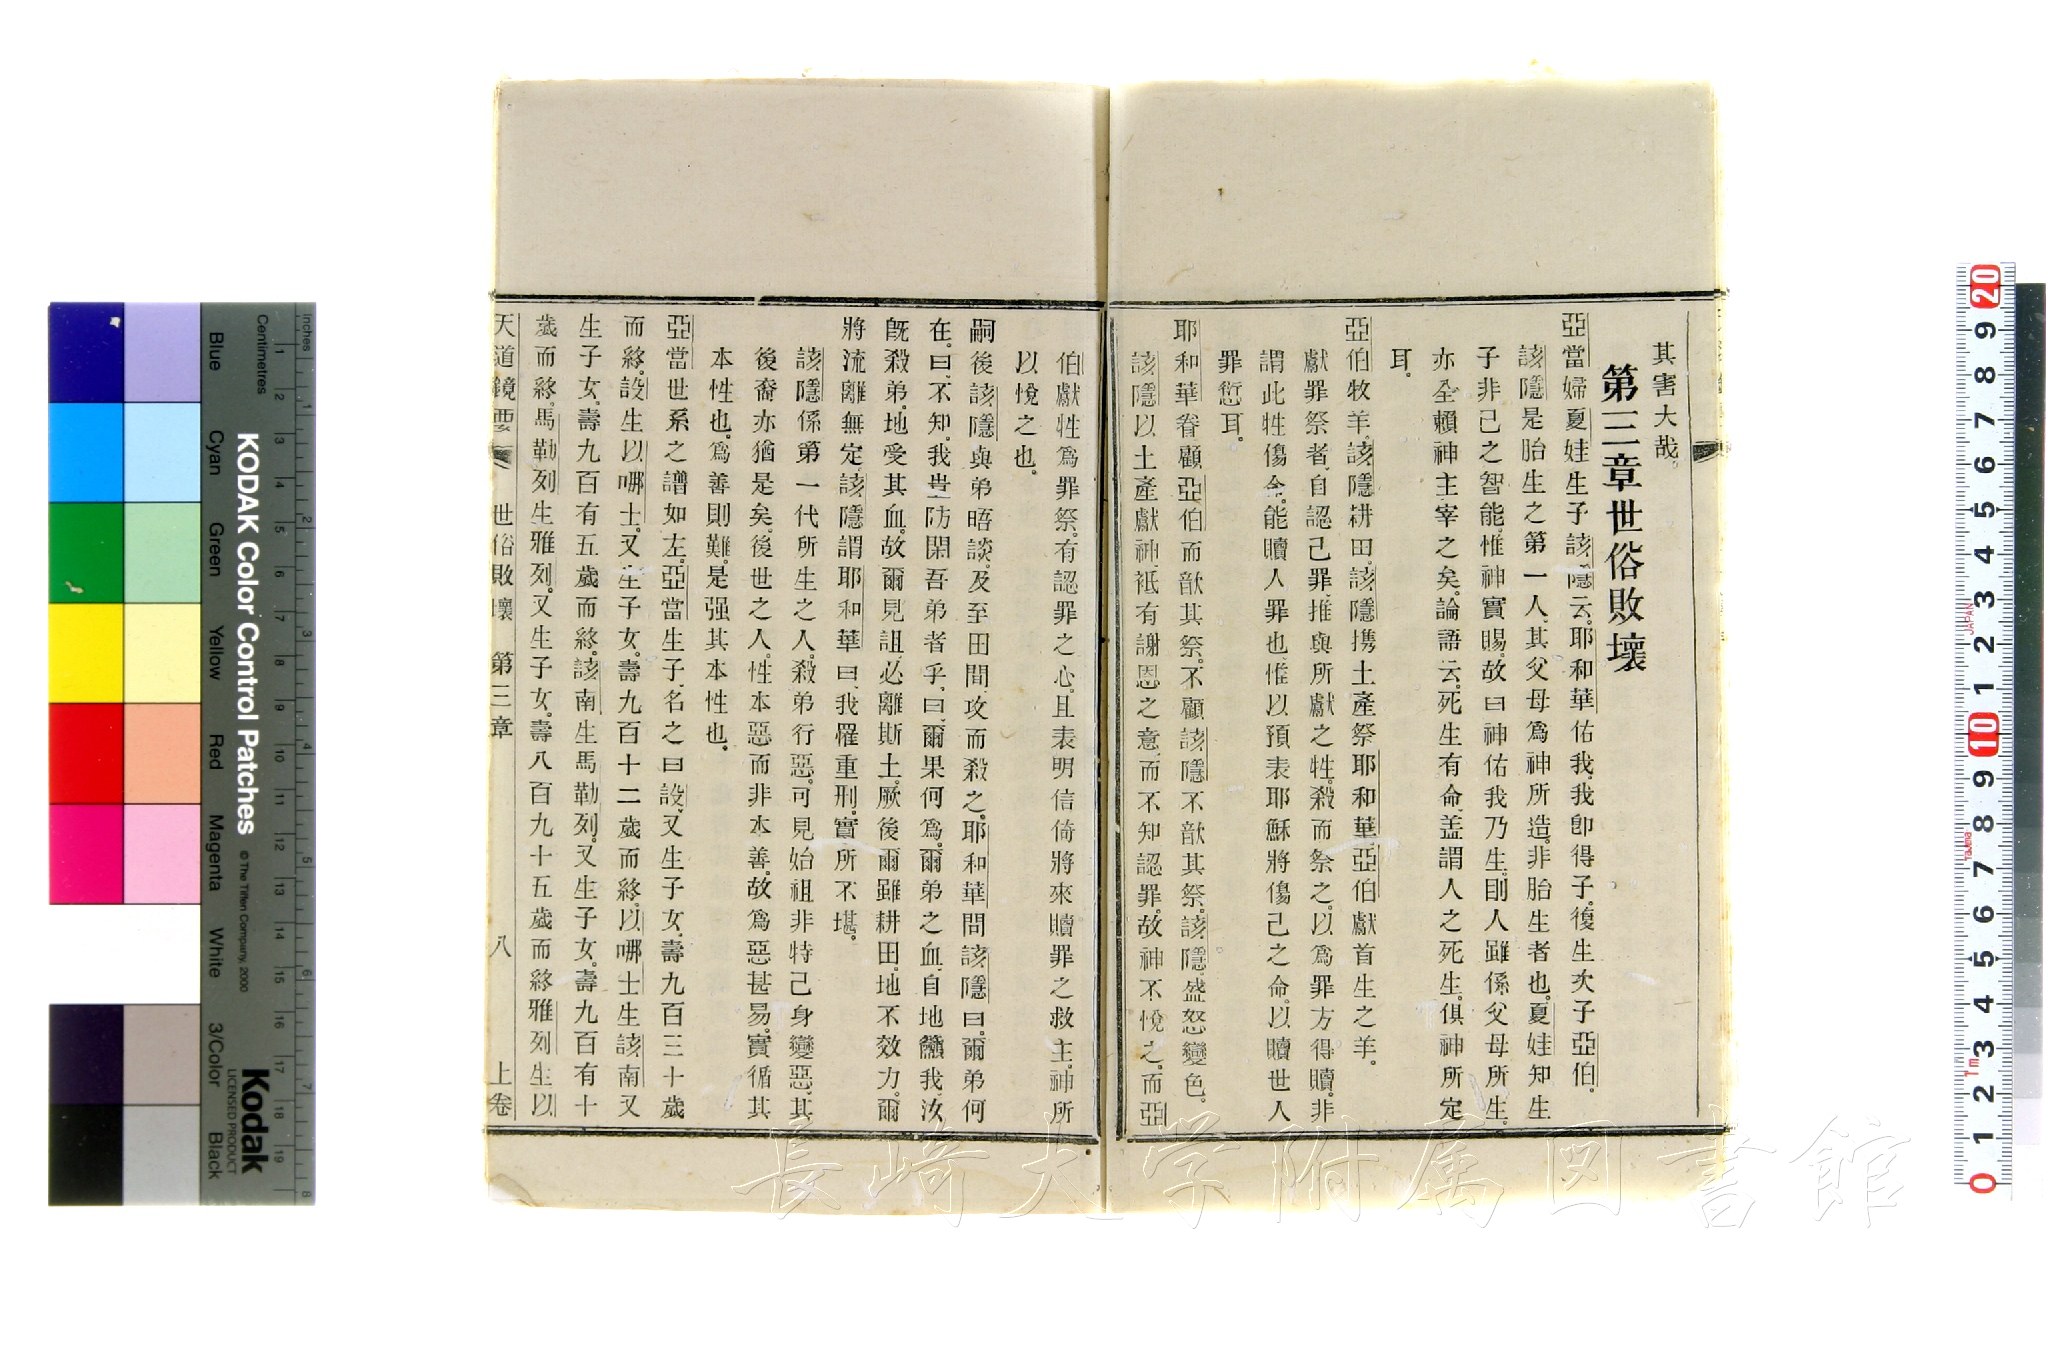 其害大哉。
第三章世俗敗壞
亞當婦夏娃生子該隱云。耶和華佑我、我卽得子。復生次子亞伯。
該隱是胎生之第一人、其父母爲神所造、非胎生者也。夏娃知生
子非己之智能、惟神實賜、故曰神佑我乃生。則人雖係父母所生、
亦全賴神主宰之矣。論語云、死生有命、盖謂人之死生、俱神所定
耳。
亞伯牧羊、該隱耕田。該隱携土產祭耶和華、亞伯獻首生之羊。
獻罪祭者、自認己罪、推與所獻之牲、殺而祭之、以爲罪方得贖。非
謂此牲傷命、能贖人罪也、惟以預表耶穌將傷己之命、以贖世人
罪愆耳。
耶和華眷顧亞伯而歆其祭、不顧該隱、不歆其祭。該隱盛怒變色。
該隱以土產獻神、祇有謝恩之意、而不知認罪、故神不悅之。而亞
伯獻牲爲罪祭、有認罪之心、且表明信倚將來贖罪之救主、神所
以悅之也。
嗣後該隱與弟晤談、及至田間、攻而殺之。耶和華問該隱曰、爾弟何
在。曰、不知、我豈防閑吾弟者乎。曰、爾果何爲、爾弟之血、自地籲我、汝
旣殺弟、地受其血、故爾見詛、必離斯土、厥後爾雖耕田、地不效力。爾
將流離無定。該隱謂耶和華曰、我罹重刑、實所不堪。
該隱係第一代所生之人、殺弟行惡、可見始祖非特己身變惡、其
後裔亦猶是矣。後世之人、性本惡而非本善、故爲惡甚易、實循其
本性也、爲善則難、是强其本性也。
亞當世系之譜如左。亞當生子、名之曰設、又生子女、壽九百三十歲
而終。設生以哪士、又生子女、壽九百十二歲而終。以哪士生該南、又
生子女、壽九百有五歲而終。該南生馬勒列、又生子女、壽九百有十
歲而終。馬勒列生雅列、又生子女、壽八百九十五歲而終。雅列生以
天道鏡要 世俗敗壞 第三章 八 上卷
Inches
Centimetres
Blue Cyan Green Yellow Red Magenta White 3/Color Black
KODAK Color Control Patches © The Tiffen Company, 2000
Kodak
LICENSED PRODUCT
長崎大学附属図書館